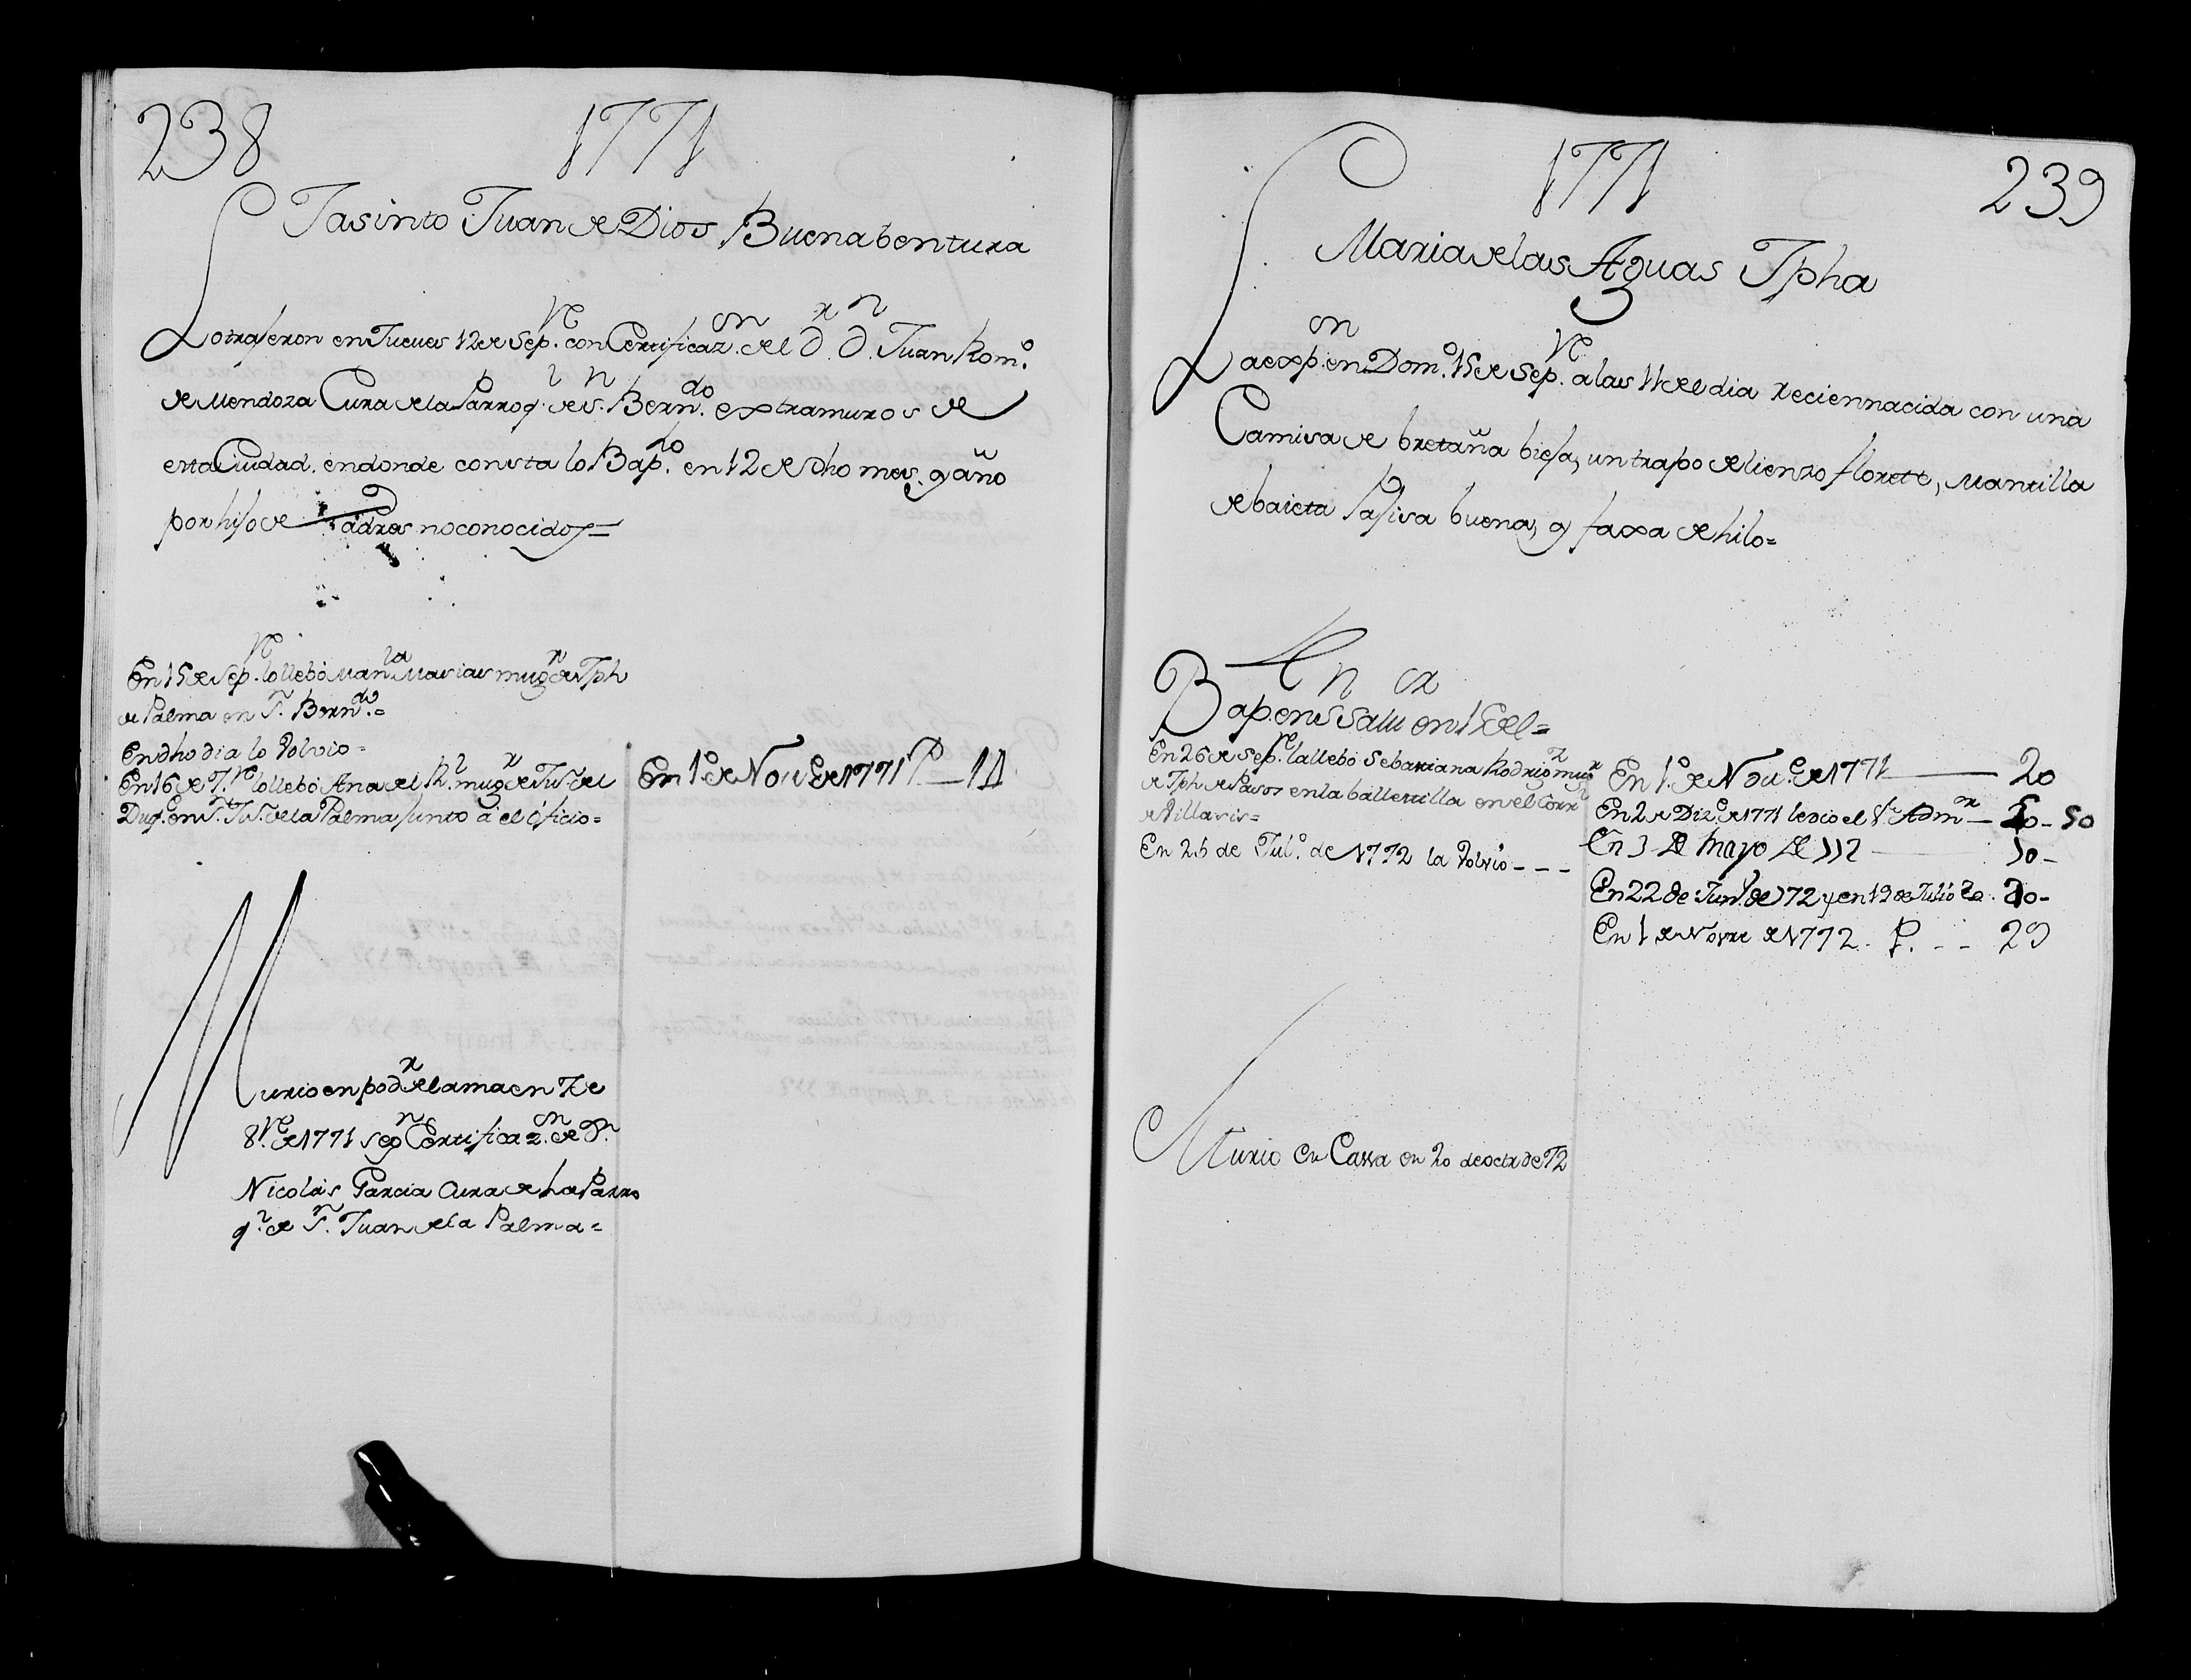 238
1771
Jasinto Juan de Dios Buenabentura
Lo trajeron en Jueves 12 de Sepve. con Certificazon. del Dr. Dn. Juan Romo.
de Mendoza Cura de la Parroql. de Sn. Berndo. extramuros de
esta Ciudad. en donde consta lo Bapdo. en 12 de dho mes, y año
por hijo de Padres no conocidos=
En 15 de Sepve. lo llebó Manla Masias mugr de Jph
de Palma en Sn. Berndo.=
En dho dia lo Volvio=
En 16 de 7ve. lo llebó Ana del Rl. mugr de
en Sn. de la Palma junto á el oficio=
En 1o de Nove de 1771 P — 14
Murio en podr de la ma en 7 de
8ve. de 1771 segn Certificazon. de Dn.
Nicolás Garcia Cura de la Parro
ql. de Sn. Juan de la Palma=
1771
239
Maria de las Aguas Jpha
La expon. en Domo. 15 de Sepve. a las 11 del dia recien nacida con una
Camisa de bretaña bieja, un trapo de lienzo florete, Mantilla
de baieta pajisa buena, y faxa de hilo=
Bap. en Sn Salvr en 18 del=
En 26 de Sepve. la llebó Sebastiana Rodrigz mugr
de Jph de Pasos en la ballestilla en el Corrl
de Villasis=
En 25 de Julo. de 1772 la Volvio - - -
En 1o. de Nove. de 1771 — 20
En 2 de Dize de 1771 le dio el Sr. Admor — 20 - 50
En 3 de Mayo de 772 — 30 -
En 22 de Juno. de 772 y en 19 de Julio 20 -
En 1 de Novre de 1772 - P. - - 29
Murio en Cassa en 20 de octe de 72